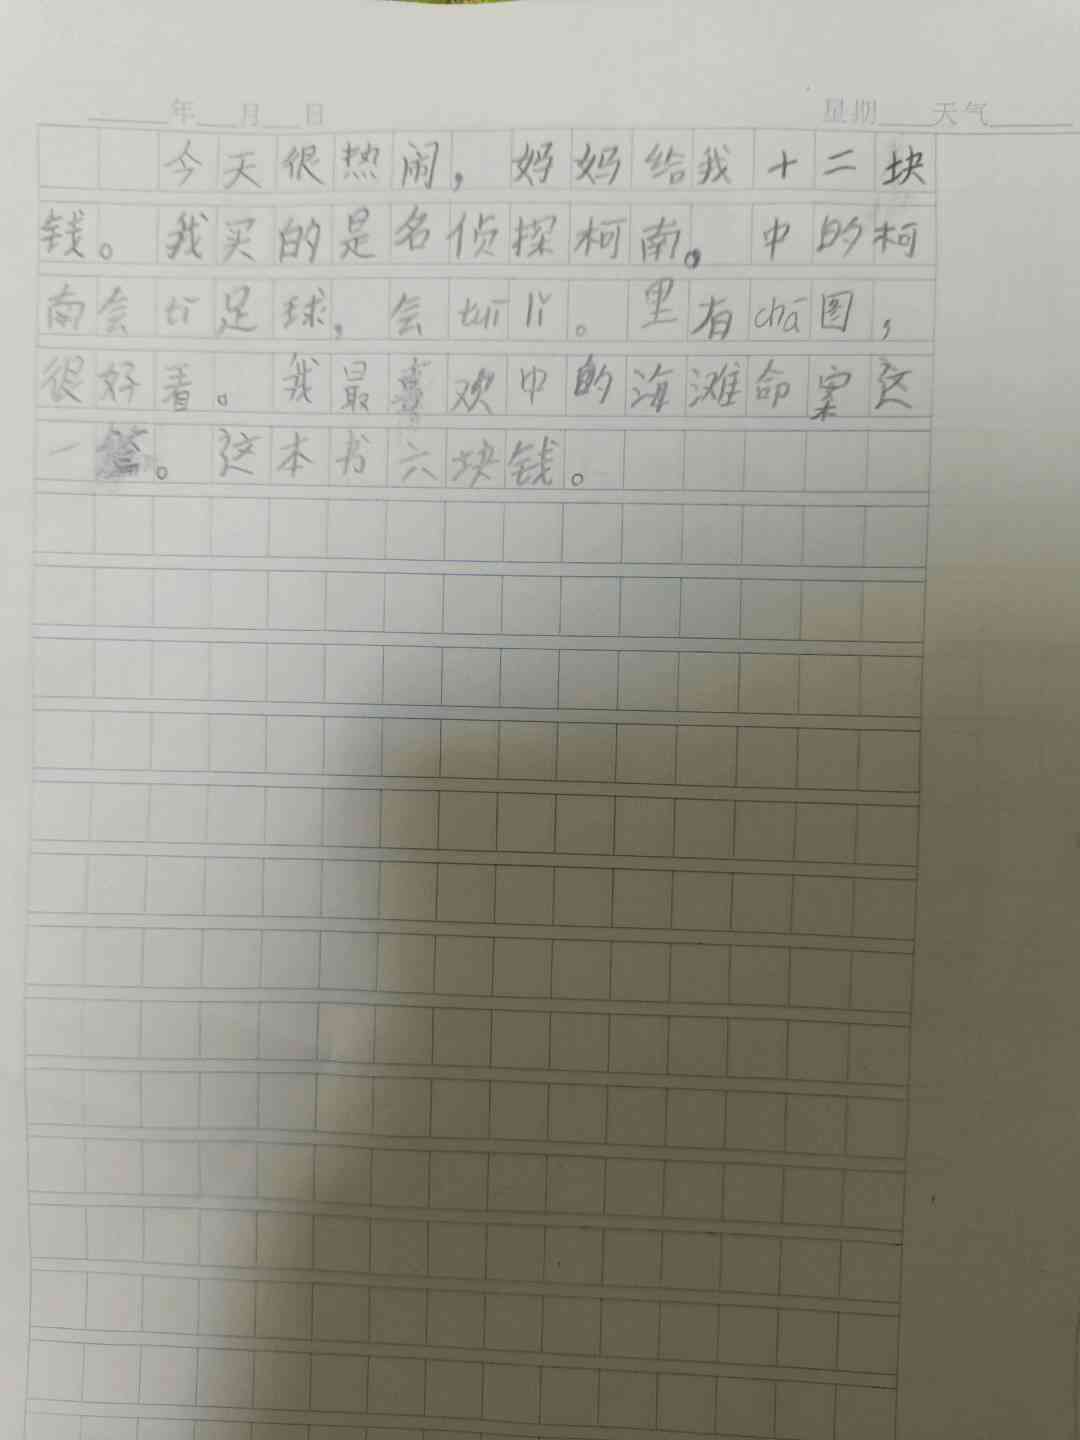 年 月 日 星期 天气
今天很热闹，妈妈给我十二块
钱。我买的是名侦探柯南。中的柯
南会tī足球，会tuī lǐ。里有chā图，
很好看。我最喜欢中的海滩命案这
一篇。这本书六块钱。